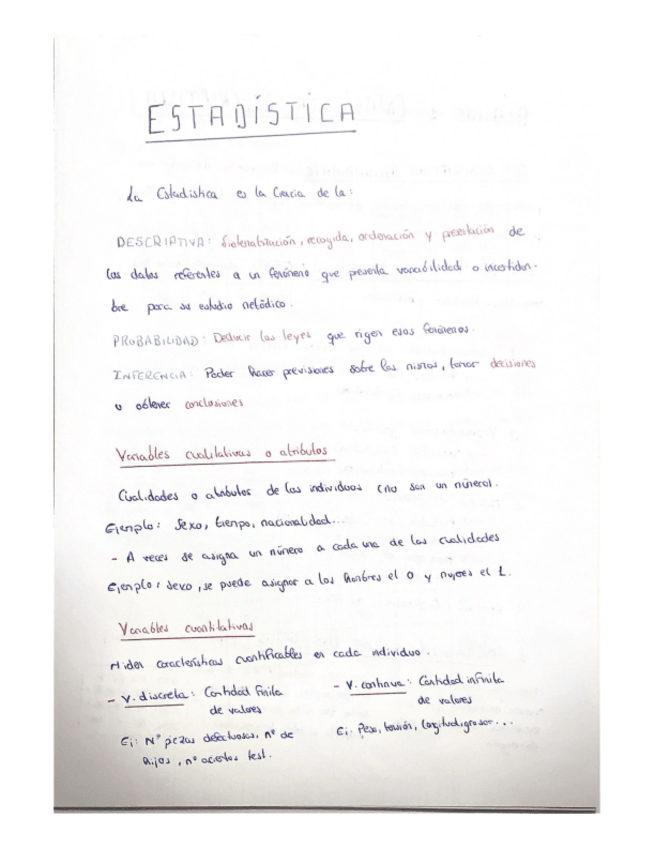 ESTADÍSTICA
La Estadística es la Ciencia de la:
DESCRIPTIVA: Sistematización, recogida, ordenación y presentación de
los datos referentes a un fenómeno que presenta variabilidad o incertidum-
bre para su estudio metódico.
PROBABILIDAD: Deducir las leyes que rigen esos fenómenos.
INFERENCIA: Poder hacer previsiones sobre los mismos, tomar decisiones
u obtener conclusiones
Variables cualitativas o atributos
Cualidades o atributos de los individuos (no son un número).
Ejemplo: Sexo, tiempo, nacionalidad...
- A veces se asigna un número a cada una de las cualidades
Ejemplo: sexo, se puede asignar a los hombres el 0 y mujeres el 1.
Variables cuantitativas
Miden características cuantificables en cada individuo.
- V. discreta: Cantidad finita
de valores
Ej: Nº piezas defectuosas, nº de
hijos, nº aciertos test.
- V. continua: Cantidad infinita
de valores
Ej: Peso, tensión, longitud, grosor...